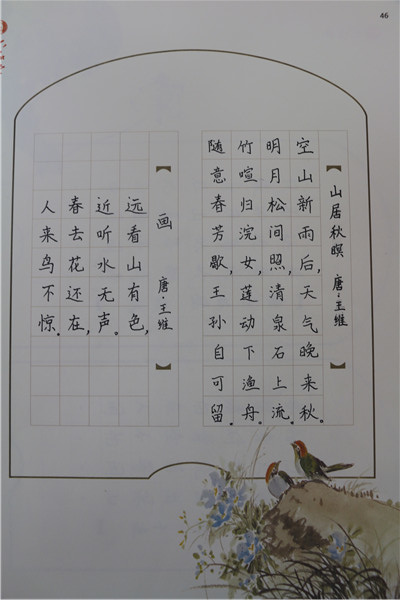 46
山居秋暝 唐·王维
空山新雨后,天气晚来秋。
明月松间照,清泉石上流。
竹喧归浣女,莲动下渔舟。
随意春芳歇,王孙自可留。
画 唐·王维
远看山有色,
近听水无声。
春去花还在,
人来鸟不惊。